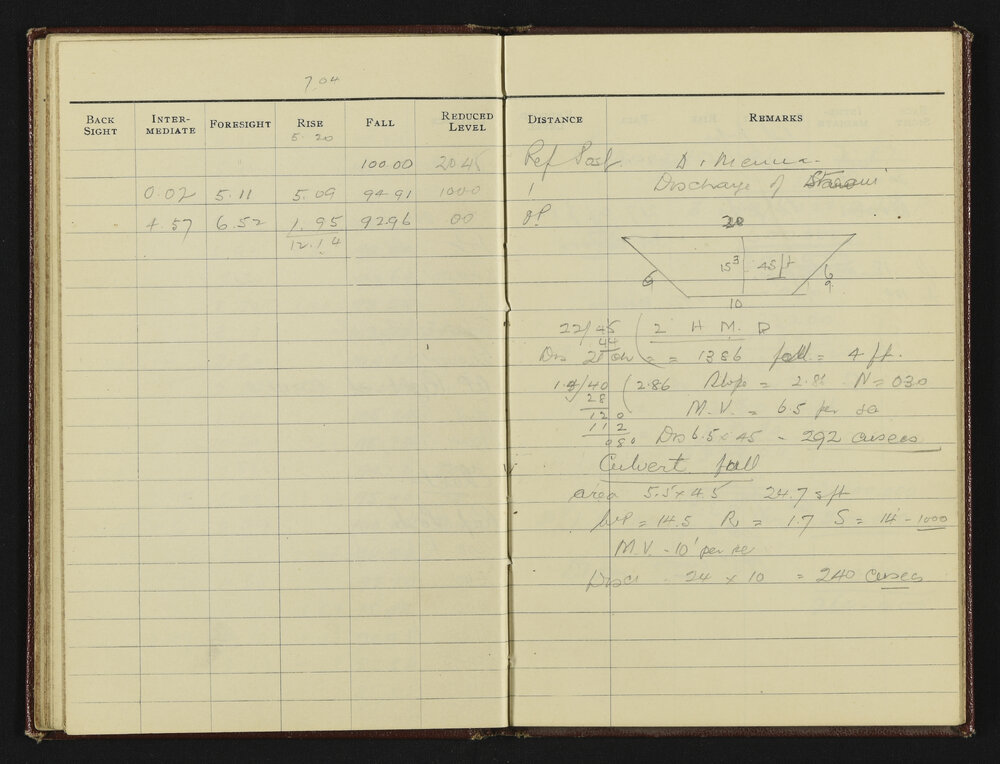 7.04
BACK SIGHT INTER-MEDIATE FORESIGHT RISE FALL REDUCED LEVEL
5.20
100.00 20.45
0.02 5.11 5.09 94.91 100.0
4.57 6.52 1.95 92.96 00
12.14
DISTANCE REMARKS
Ref Post
1 Discharge of
OP
20
15³ 45
6 6.9
10
22/45 (2 H M. D
44
Dis = = 1386 fall = 4 ft.
1.4/40 (2.86 Slope = 2.86 N = 030
28
120 M.V. = 6.5 per sec
112
080 Dis 6.5 x 45 = 292 cusecs
Culvert fall
area 5.5 x 4.5 24.7 sft
WP = 14.5 R = 1.7 S = 14 - 1000
M.V - 10' per sec
Disc 24 x 10 = 240 cusecs